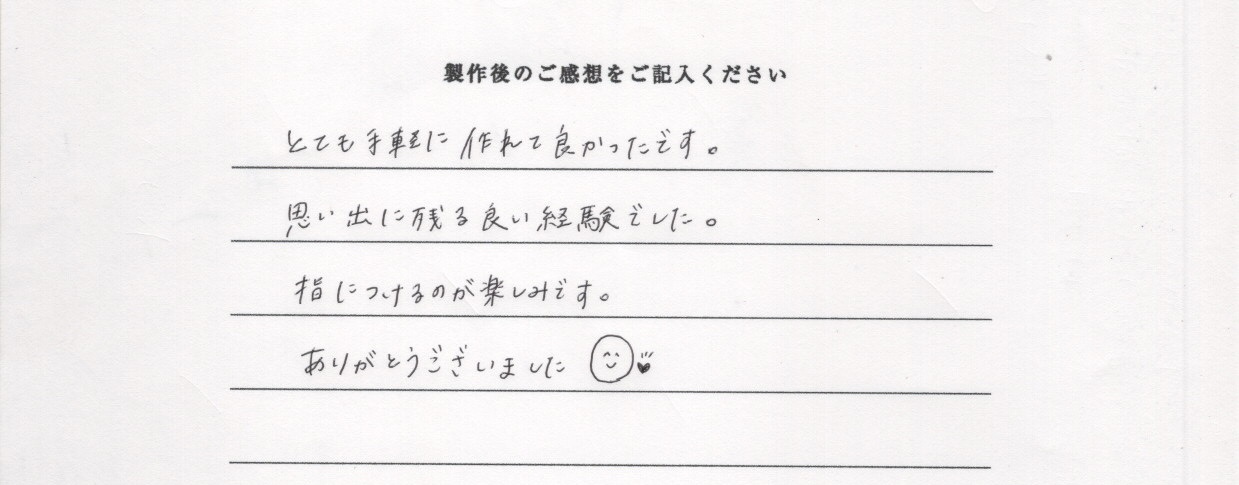 製作後のご感想をご記入ください
とても手軽に作れて良かったです。
思い出に残る良い経験でした。
指につけるのが楽しみです。
ありがとうございました